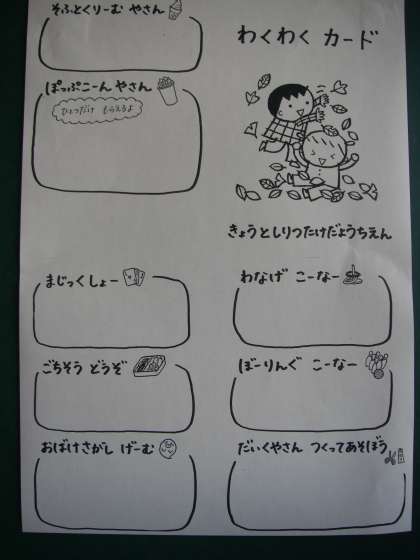 そふとくりーむ やさん
ぽっぷこーん やさん
ひとつだけ もらえるよ
わくわく カード
きょうとしりつたけだようちえん
まじっくしょー
ごちそう どうぞ
おばけさがし げーむ
わなげ こーなー
ぼーりんぐ こーなー
だいくやさん つくってあそぼう